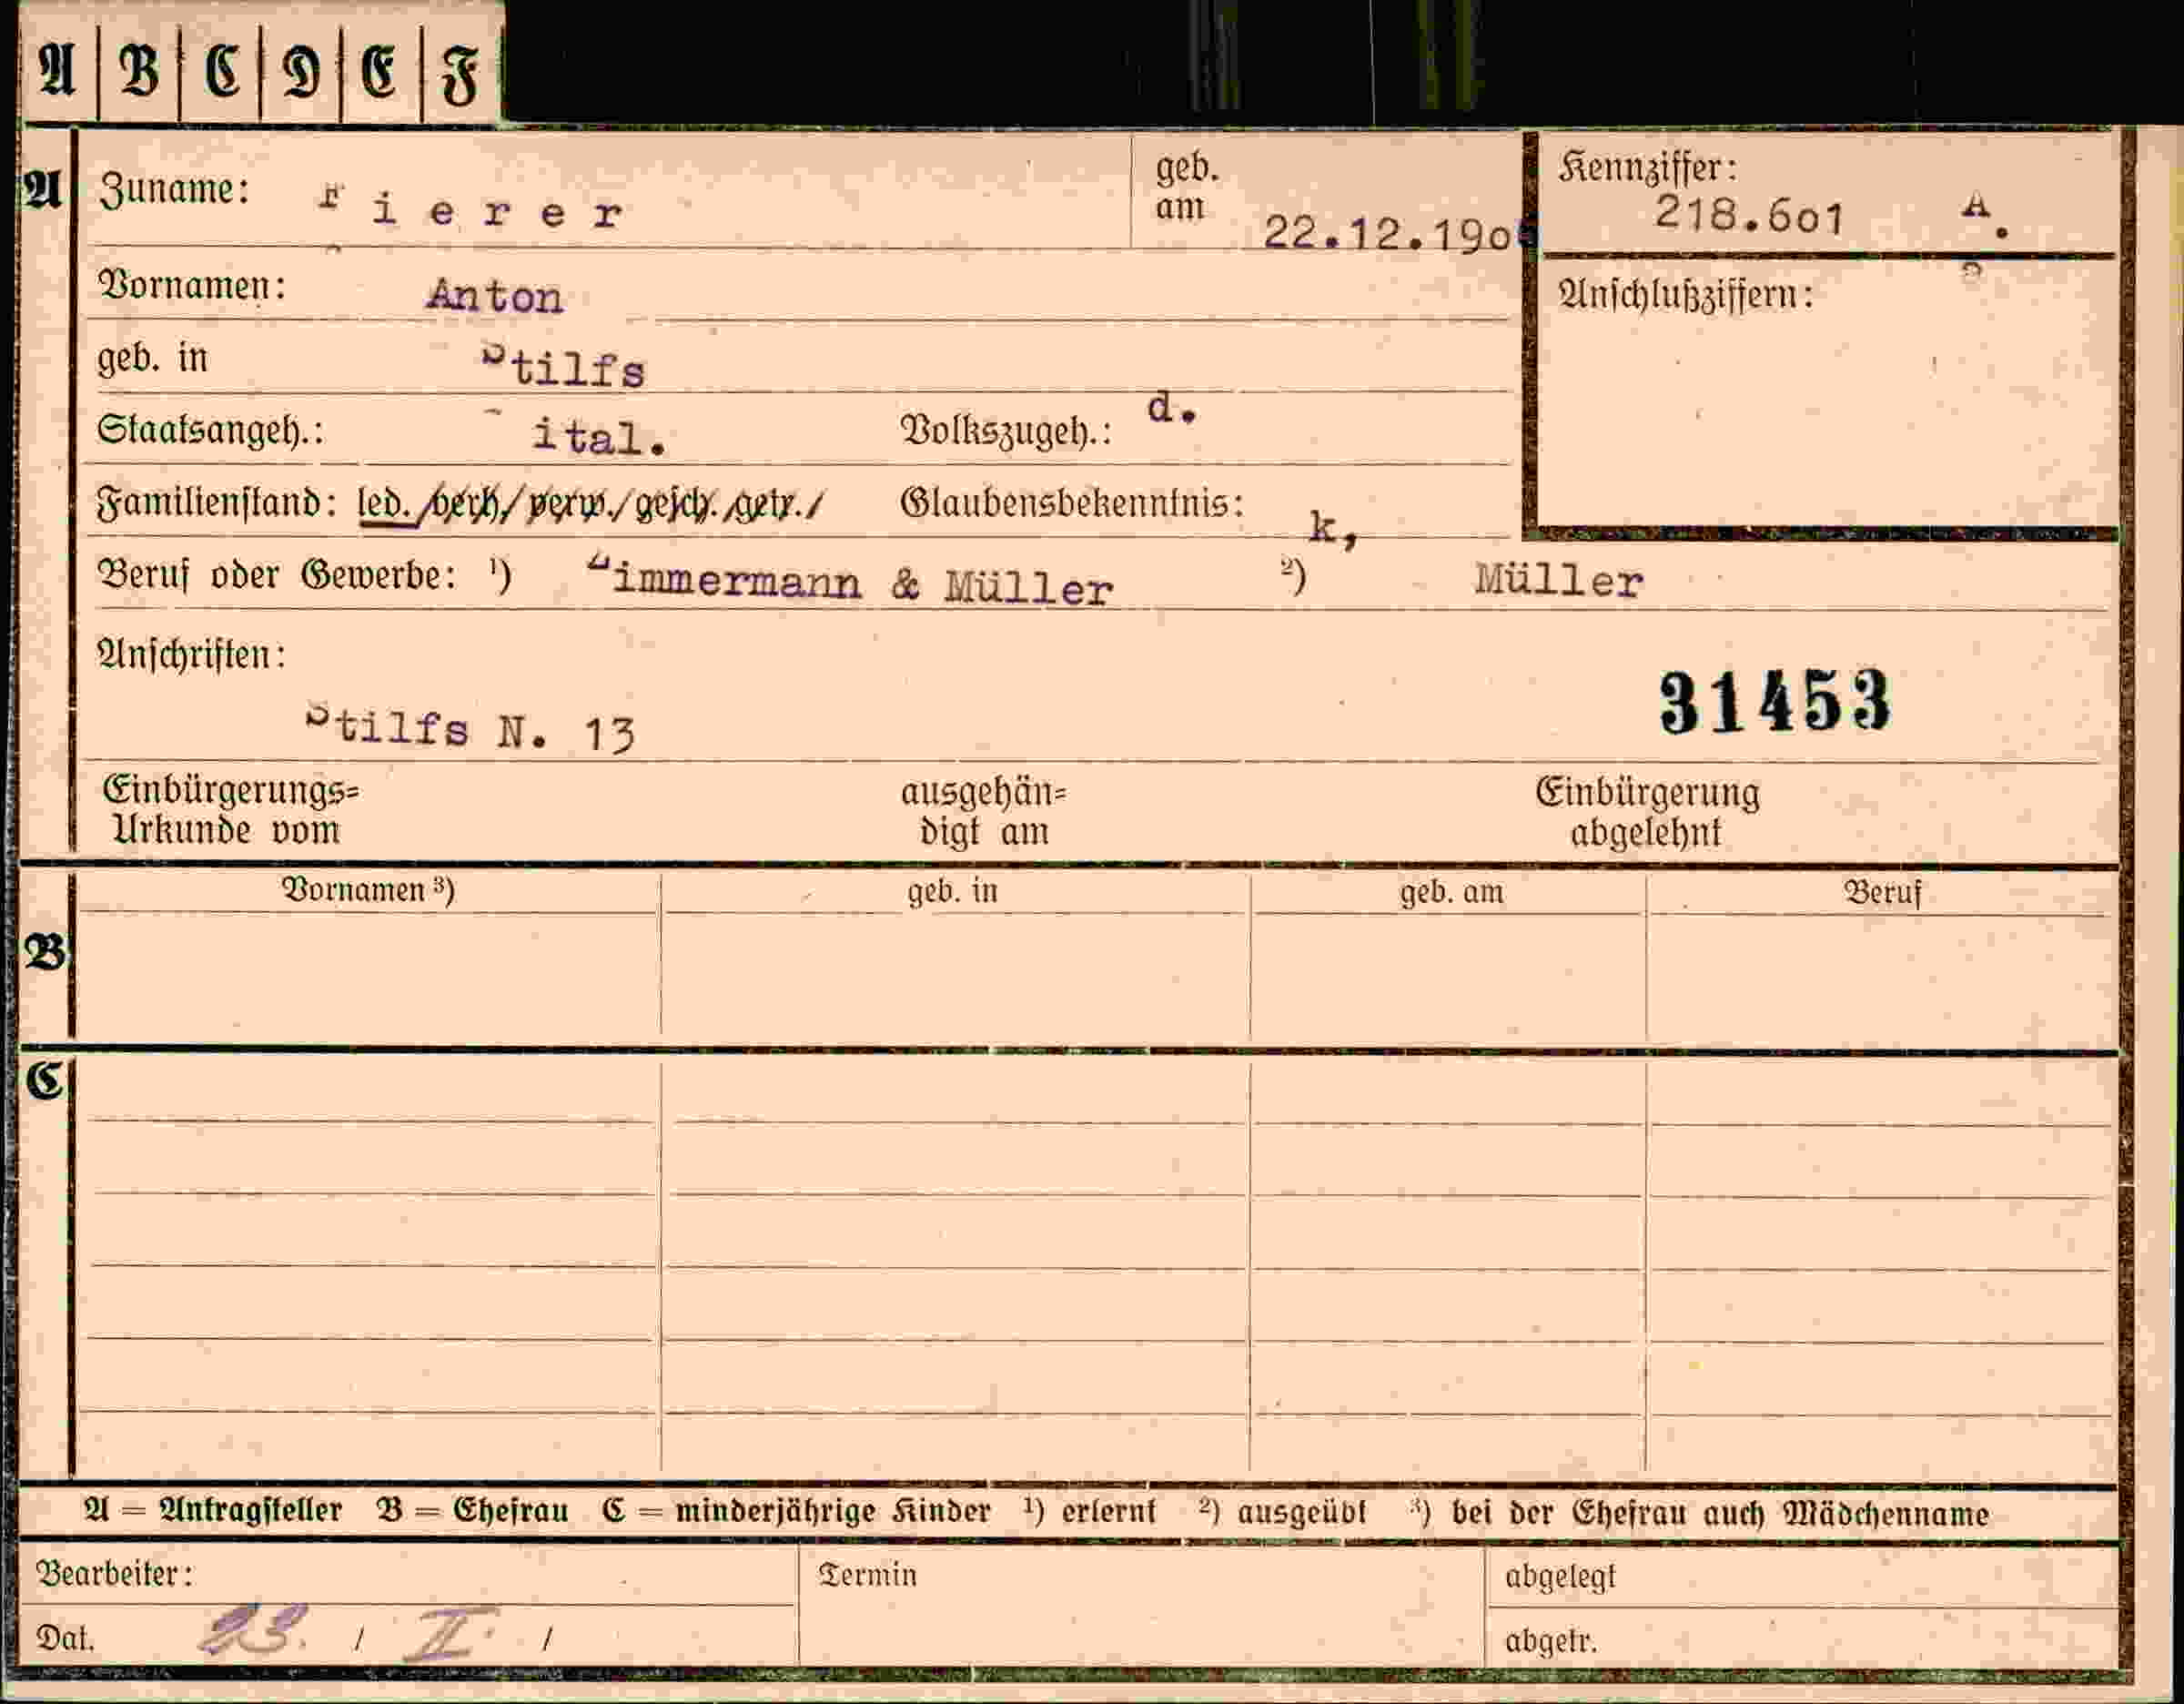 A B C D E F
A Zuname: ierer geb. am 22.12.190 Kennziffer: 218.6o1 A.
Vornamen: Anton Anschlußziffern:
geb. in Stilfs
Staatsangeh.: ital. Volkszugeh.: d.
Familienstand: led./verh./verw./gesch./getr./ Glaubensbekenntnis: k,
Beruf oder Gewerbe: ¹) Zimmermann & Müller ²) Müller
Anschriften:
Stilfs N. 13 31453
Einbürgerungs= ausgehän= Einbürgerung
Urkunde vom digt am abgelehnt
Vornamen ³) geb. in geb. am Beruf
B
C
A = Antragsteller B = Ehefrau C = minderjährige Kinder ¹) erlernt ²) ausgeübt ³) bei der Ehefrau auch Mädchenname
Bearbeiter: Termin abgelegt
Dat. 23. / II. / abgetr.